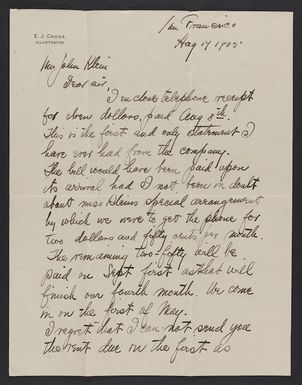 E.J. Cross
ILLUSTRATOR
San Francisco
Aug 17 1905
Mr John Klein
Dear sir,
I enclose telephone receipt
for seven dollars, paid Aug 8th.
This is the first and only statement I
have ever had from the company.
The bill would have been paid upon
its arrival had I not been in doubt
about miss Kleins special arrangement
by which we were to get the phone for
two dollars and fifty cents per month.
The remaining two-fifty will be
paid on Sept first as that will
finish our fourth month. We came
in on the first of May.
I regret that I can not send you
the rent due on the first as